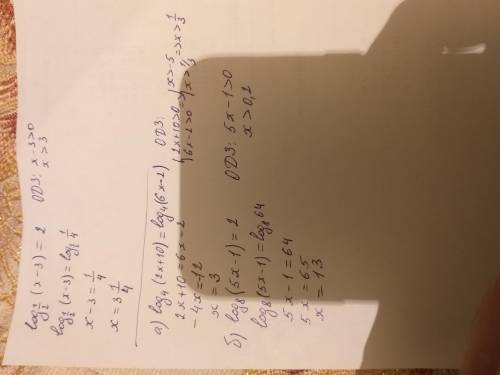 log½ (x-3) = 2   ОДЗ: x-3>0
log½ (x-3) = log½ ¼   x>3
x-3 = ¼
x = 3 ¼
а) log₄ (2x+10) = log₄ (6x-2)   ОДЗ:
{2x+10>0 => {x>-5 => x>⅓
{6x-2>0 => {x>⅓
2x+10 = 6x-2
-4x = -12
x = 3
б) log₈ (5x-1) = 2   ОДЗ: 5x-1>0
log₈ (5x-1) = log₈ 64   x>0,2
5x-1 = 64
5x = 65
x = 13